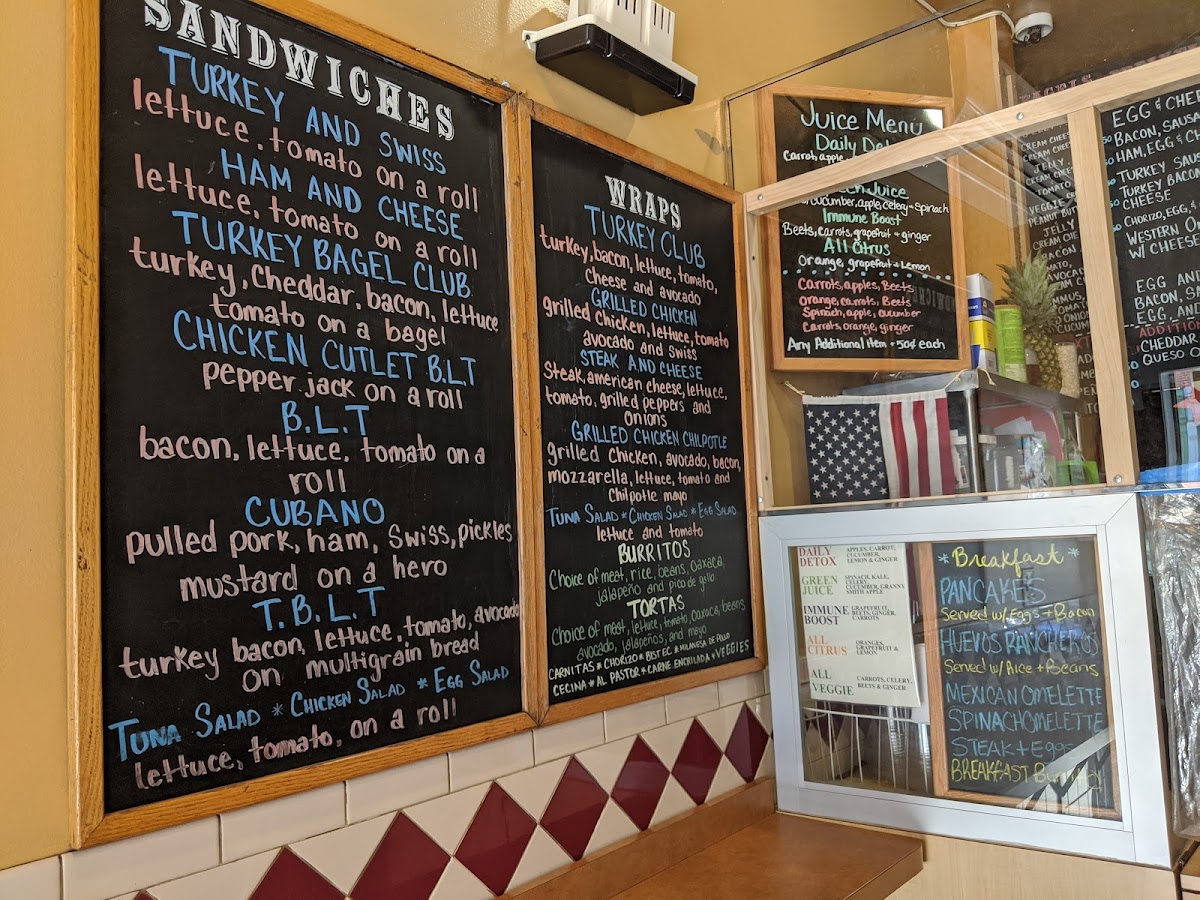 SANDWICHES
TURKEY AND SWISS
lettuce, tomato on a roll
HAM AND CHEESE
lettuce, tomato on a roll
TURKEY BAGEL CLUB
turkey, Cheddar, bacon, lettuce
tomato on a bagel
CHICKEN CUTLET B.L.T
pepper jack on a roll
B.L.T
bacon, lettuce, tomato on a
roll
CUBANO
pulled pork, ham, Swiss, pickles
mustard on a hero
T.B.L.T
turkey bacon, lettuce, tomato, avocado
on multigrain bread
TUNA SALAD * CHICKEN SALAD * EGG SALAD
lettuce, tomato, on a roll
WRAPS
TURKEY CLUB
turkey, bacon, lettuce, tomato,
Cheese and avocado
GRILLED CHICKEN
grilled Chicken, lettuce, tomato
avocado and swiss
STEAK AND CHEESE
Steak, american cheese, lettuce,
tomato, grilled peppers and
Onions
GRILLED CHICKEN CHILPOTLE
grilled chicken, avocado, bacon,
mozzarella, lettuce, tomato and
Chilpotle mayo
TUNA SALAD * CHICKEN SALAD * EGG SALAD
lettuce and tomato
BURRITOS
Choice of meat, rice, beans, Oaxaca,
jalapeño and pico de gallo
TORTAS
Choice of meat, lettuce, tomato, Oaxaca, beans
avocado, jalapeños, and mayo
CARNITAS * CHORIZO * BISTEC * MILANESA DE POLLO
CECINA * AL PASTOR * CARNE ENCHILADA * VEGGIES
Juice Menu
Daily
Carrot, apple
Juice
cucumber, apple, celery + Spinach
Immune Boost
Beets, carrots, grapefruit + ginger
All Citrus
Orange, grapefruit + Lemon
Carrots, apples, Beets
Orange, carrots, Beets
Spinach, apple, cucumber
Carrots, orange, ginger
Any Additional Item + 50¢ each
CREAM CHEE
JELLY
TOMATO
PEANUT BUT
JELLY
CREAM CHE
TOMATO
AVOCAD
EGG & CHE
BACON, SAUS
HAM, EGG & C
TURKEY SAU
TURKEY BACON
CHEESE
CHORIZO, EGG
WESTERN O
W/ CHEESE
EGG AND
BACON, S
EGG, AN
ADDITION
CHEDDAR
QUESO
DAILY DETOX
APPLES, CARROT, CUCUMBER, LEMON & GINGER
GREEN JUICE
SPINACH, KALE, CELERY, CUCUMBER, GRANNY SMITH APPLE
IMMUNE BOOST
GRAPEFRUIT, BEETS, GINGER, CARROTS
ALL CITRUS
ORANGES, GRAPEFRUIT & LEMON
ALL VEGGIE
CARROTS, CELERY, BEETS & GINGER
* Breakfast *
PANCAKES
Served w/Eggs + Bacon
HUEVOS RANCHEROS
Served w/Rice + Beans
MEXICAN OMELETTE
SPINACH OMELETTE
STEAK + Eggs
BREAKFAST Burrito